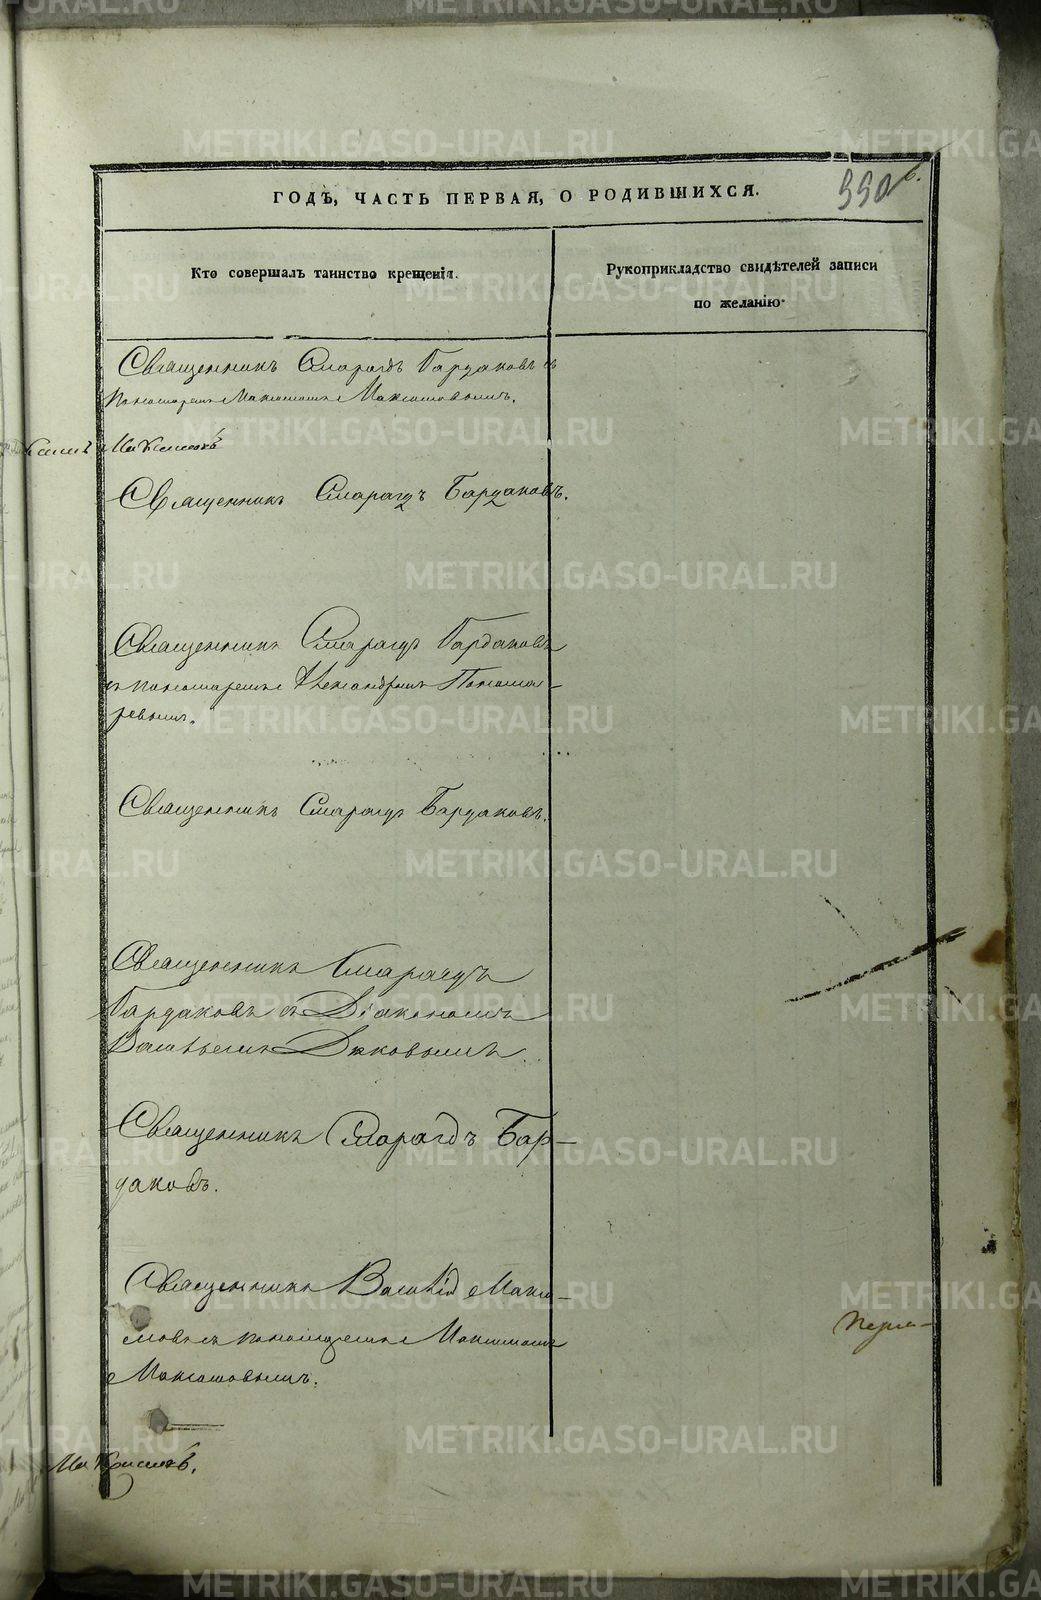 550
ГОДЪ, ЧАСТЬ ПЕРВАЯ, О РОДИВШИХСЯ.
Кто совершалъ таинство крещенія.
Рукоприкладство свидѣтелей записи
по желанію.
Священникъ Смарагдъ Бардаковъ съ
пономаремъ Максимомъ Максимовымъ.
Священникъ Смарагдъ Бардаковъ.
Священникъ Смарагдъ Бардаковъ
съ пономаремъ Александромъ Понома-
ревымъ.
Священникъ Смарагдъ Бардаковъ.
Священникъ Смарагдъ
Бардаковъ съ Діакономъ
Васильемъ Дьяковымъ.
Священникъ Смарагдъ Бар-
даковъ.
Священникъ Василій Макси-
мовъ съ пономаремъ Максимомъ
Максимовымъ.
METRIKI.GASO-URAL.RU